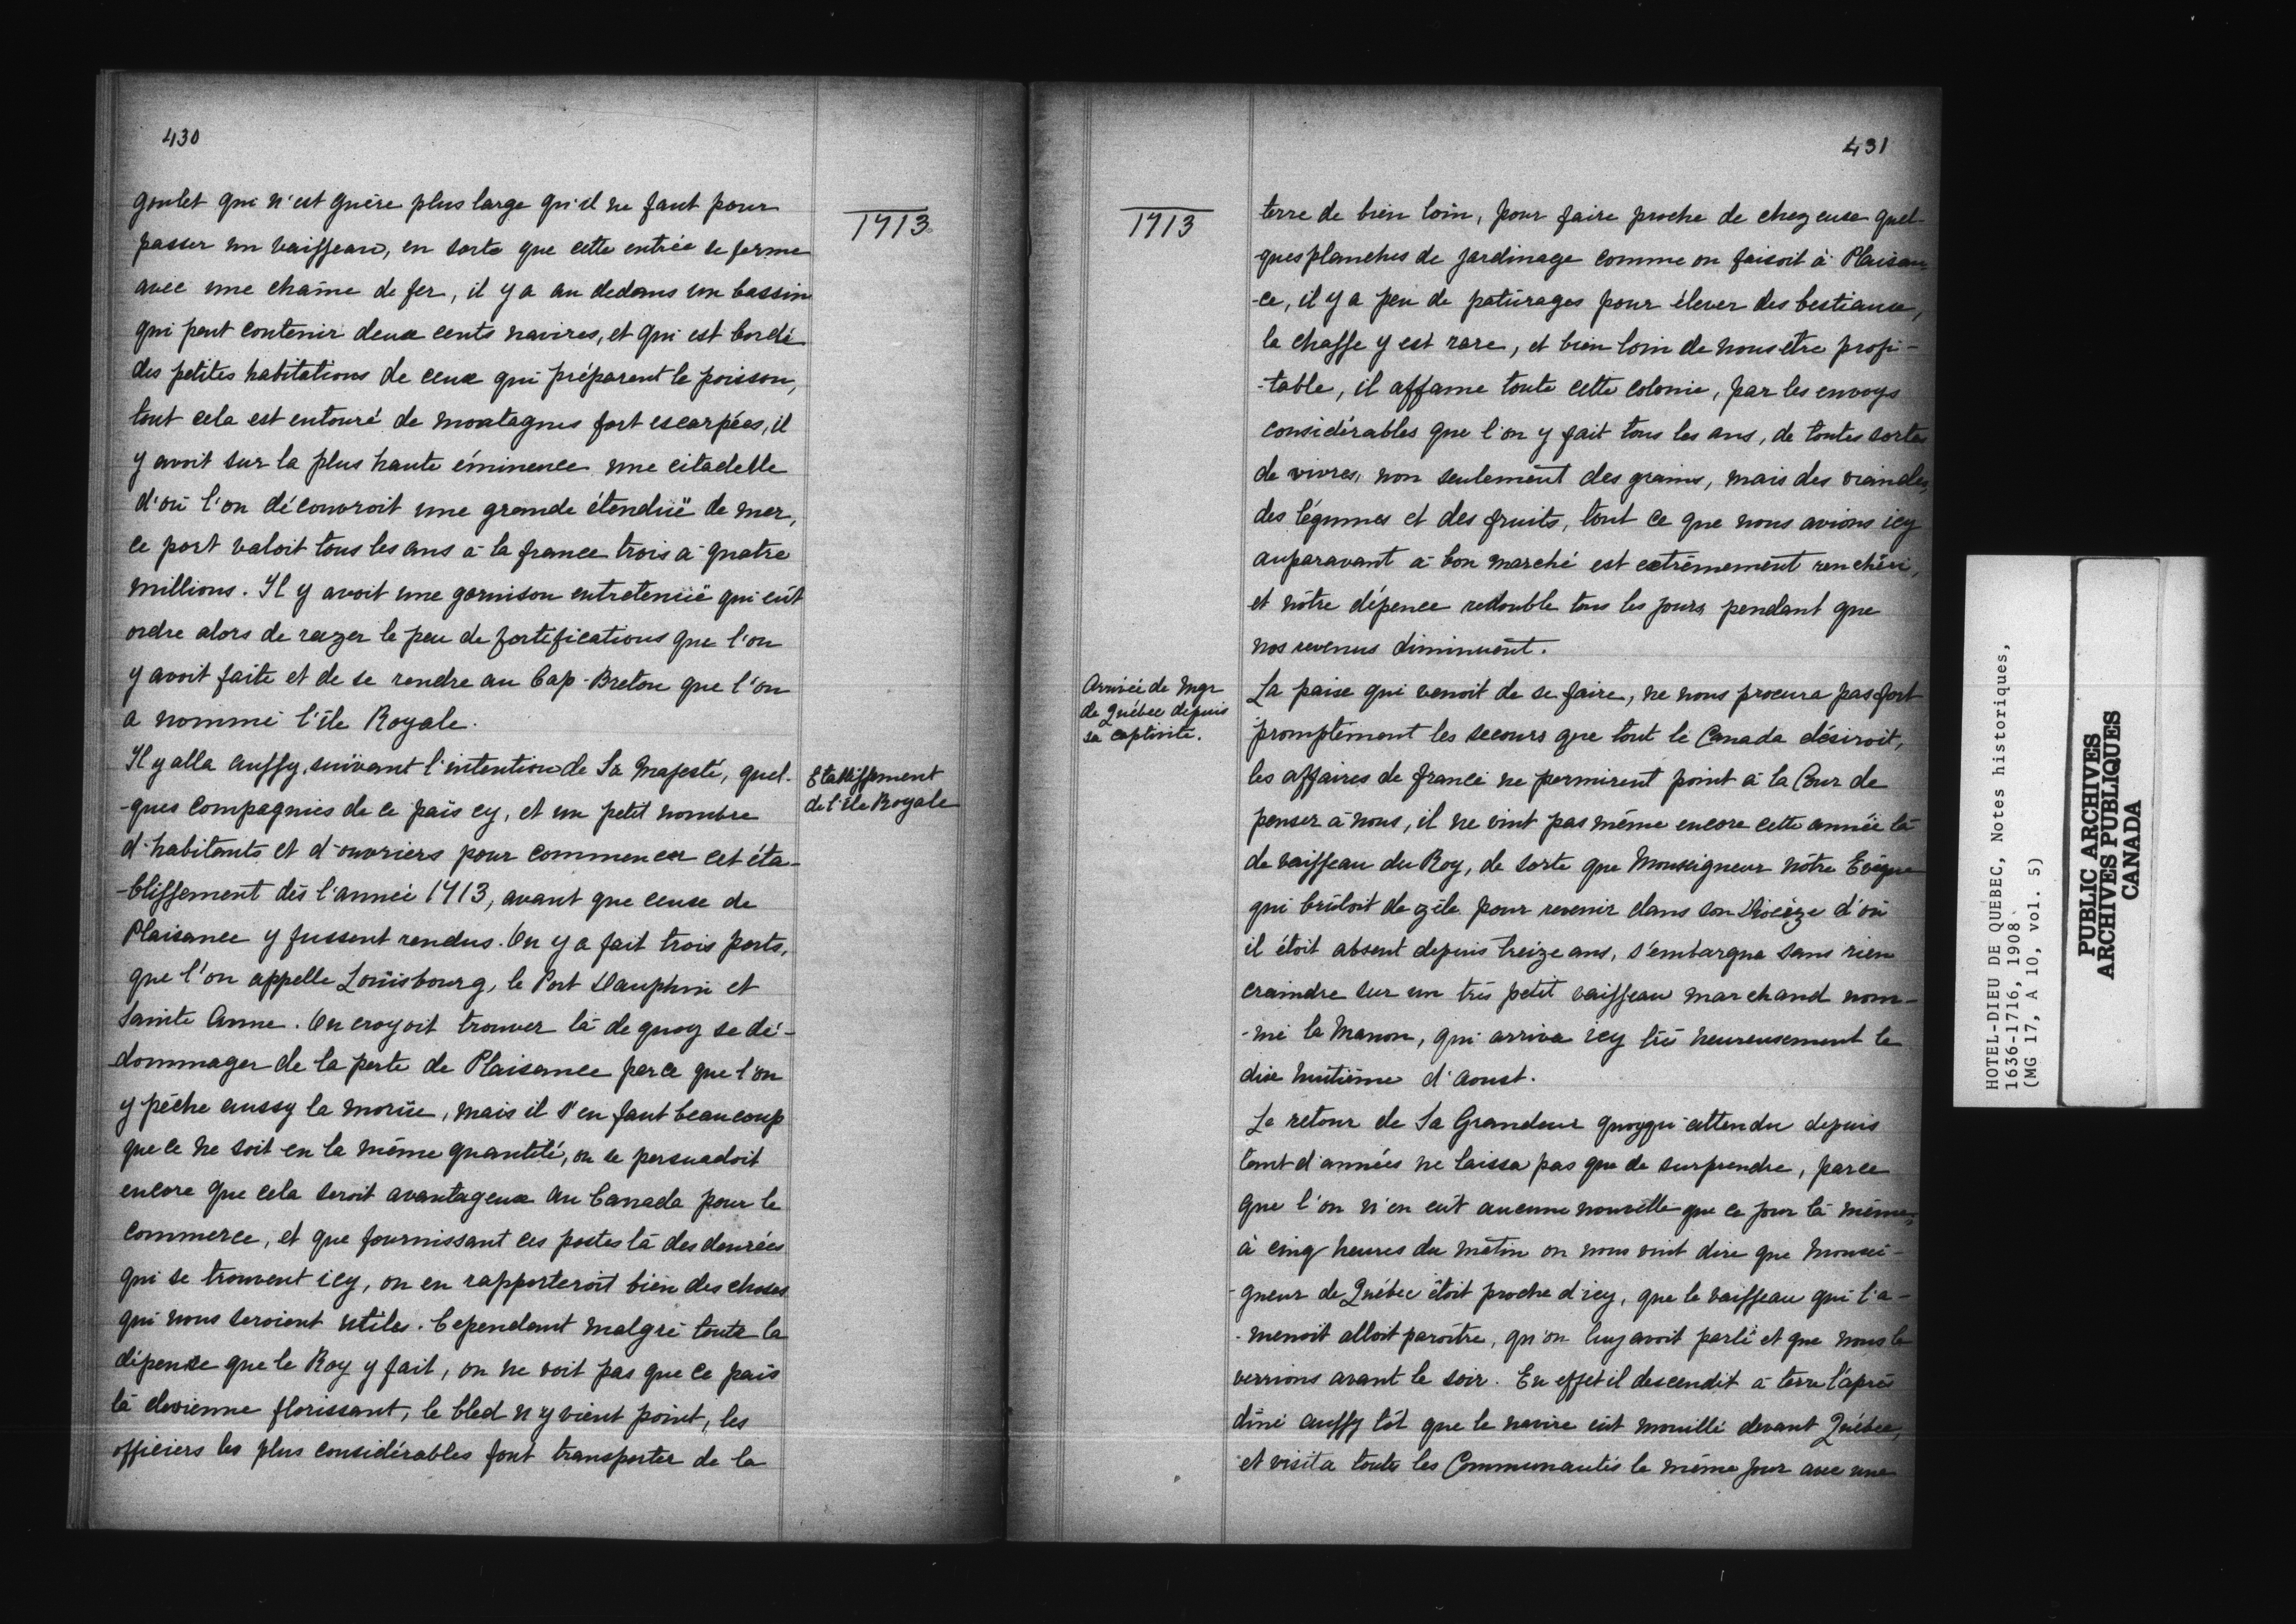 430
1713
goulet qui n'est guère plus large qu'il ne faut pour
passer un vaisseau, en sorte que cette entrée se ferme
avec une chaîne de fer, il y a au dedans un bassin
qui peut contenir deux cents navires, et qui est bordé
des petites habitations de ceux qui préparent le poisson,
tout cela est entouré de montagnes fort escarpées, il
y avoit sur la plus haute éminence une citadelle
d'où l'on découvroit une grande étenduë de mer,
ce port valoit tous les ans à la france trois à quatre
millions. Il y avoit une garnison entretenuë qui eût
ordre alors de razer le peu de fortifications que l'on
y avoit faite et de se rendre au Cap-Breton que l'on
a nommé l'île Royale.
Il y alla aussy, suivant l'intention de Sa Majesté, quel-
-ques compagnies de ce païs cy, et un petit nombre
d'habitants et d'ouvriers pour commencer cet éta-
-blissement dès l'année 1713, avant que ceux de
Plaisance y fussent rendus. On y a fait trois ports,
que l'on appelle Loüisbourg, le Port Dauphin et
Sainte Anne. On croyoit trouver là de quoy se dé-
-dommager de la perte de Plaisance parce que l'on
y pêche aussy la moruë, mais il s'en faut beaucoup
que ce ne soit en la même quantité, on se persuadoit
encore que cela seroit avantageux au Canada pour le
commerce, et que fournissant ces postes là des denrées
qui se trouvent icy, on en rapporteroit bien des choses
qui nous seroient utiles. Cependant malgré toute la
dépense que le Roy y fait, on ne voit pas que ce païs
là devienne florissant, le bled n'y vient point, les
officiers les plus considérables font transporter de la
Etablissement
de l'île Royale
431
1713
terre de bien loin, pour faire proche de chez eux quel-
-ques planches de jardinage comme on faisoit à Plaisan-
-ce, il y a peu de paturages pour élever des bestiaux,
la chasse y est rare, et bien loin de nous etre profi-
-table, il affame toute cette colonie, par les envoys
considérables que l'on y fait tous les ans, de toutes sortes
de vivres, non seulement des grains, mais des viandes,
des légumes et des fruits, tout ce que nous avions icy
auparavant à bon marché est extrêmement renchéri,
et nôtre dépence redouble tous les jours pendant que
nos revenus diminuent.
Arrivée de Mgr
de Québec depuis
sa captivité.
La paix qui venoit de se faire, ne nous procura pas fort
promptement les secours que tout le Canada désiroit,
les affaires de france ne permirent point à la Cour de
penser à nous, il ne vint pas même encore cette année là
de vaisseau du Roy, de sorte que Monseigneur nôtre Evêque
qui brûloit de zèle pour revenir dans son Diocèze d'où
il étoit absent depuis treize ans, s'embarqua sans rien
craindre sur un très petit vaisseau marchand nom-
-mé le Manon, qui arriva icy très heureusement le
dix huitième d'aoust.
Le retour de Sa Grandeur quoyqu'attendu depuis
tant d'années ne laissa pas que de surprendre, parce
que l'on n'en eût aucune nouvelle que ce jour là même,
à cinq heures du matin on nous vint dire que Monsei-
-gneur de Québec étoit proche d'icy, que le vaisseau qui l'a-
-menoit alloit paroître, qu'on luy avoit parlé et que nous le
verrions avant le soir. En effet il descendit à terre l'après
dîné aussy tôt que le navire eût mouillé devant Québec,
et visita toute les Communautés le même jour avec une
HOTEL-DIEU DE QUEBEC, Notes historiques,
1636-1716, 1908
(MG 17, A 10, vol. 5)
PUBLIC ARCHIVES
ARCHIVES PUBLIQUES
CANADA